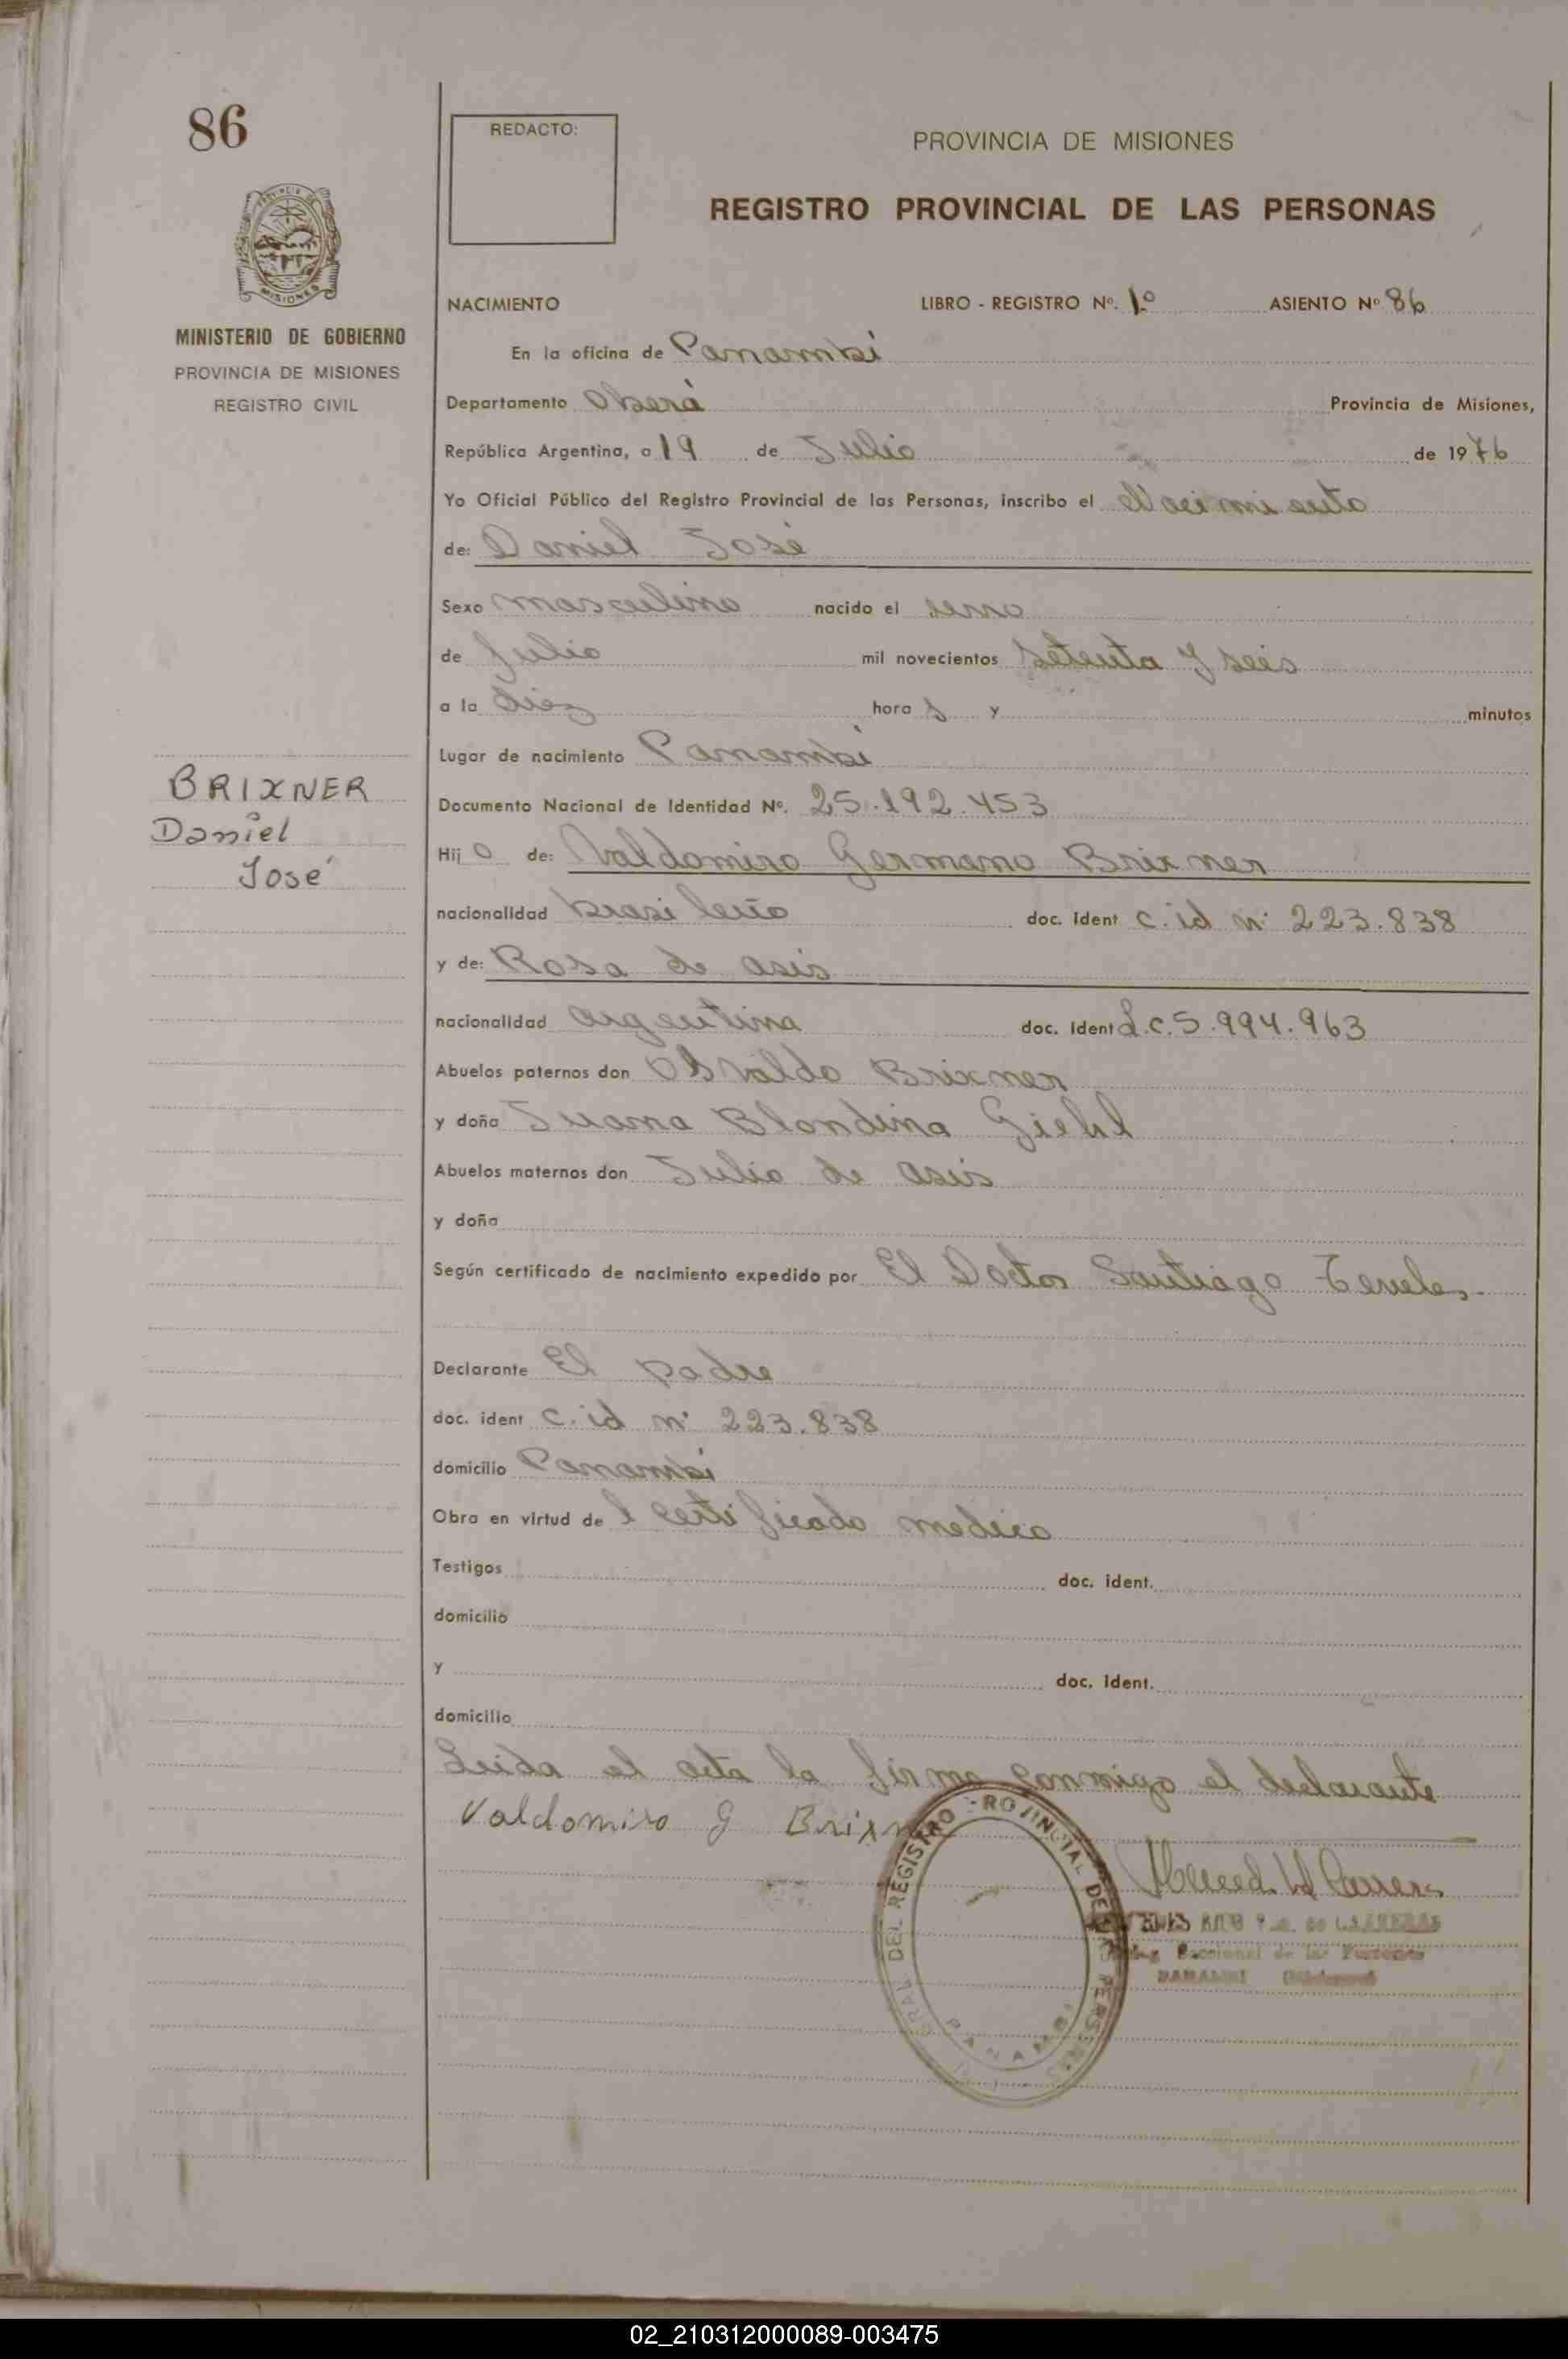 86
REDACTO:
PROVINCIA DE MISIONES
REGISTRO PROVINCIAL DE LAS PERSONAS
MISIONES
MINISTERIO DE GOBIERNO
PROVINCIA DE MISIONES
REGISTRO CIVIL
NACIMIENTO LIBRO - REGISTRO Nº. 1º ASIENTO Nº 86
En la oficina de Panambi
Departamento Oberá Provincia de Misiones,
República Argentina, a 19 de Julio de 1976
Yo Oficial Público del Registro Provincial de las Personas, inscribo el Nacimiento
de: Daniel José
Sexo masculino nacido el
de Julio mil novecientos setenta y seis
a la diez hora s y minutos
Lugar de nacimiento Panambi
BRIXNER
Daniel
José
Documento Nacional de Identidad Nº. 25.192.453
Hij o de: Valdomiro Germano Brixner
nacionalidad brasileño doc. ident c. id nº 223.838
y de: Rosa de asis
nacionalidad argentina doc. ident L.C. 5.994.963
Abuelos paternos don Osvaldo Brixner
y doña Juana Blondina Giehl
Abuelos maternos don Julio de asis
y doña
Según certificado de nacimiento expedido por El Doctor Santiago
Declarante El padre
doc. ident c. id nº 223.838
domicilio Panambi
Obra en virtud de l certificado medico
Testigos doc. ident.
domicilio
y doc. ident.
domicilio
Leida el acta la firma conmigo el declarante
Valdomiro G Brixn
DEL REGISTRO PROVINCIAL DE LAS PERSONAS
PANAMBI
02_210312000089-003475